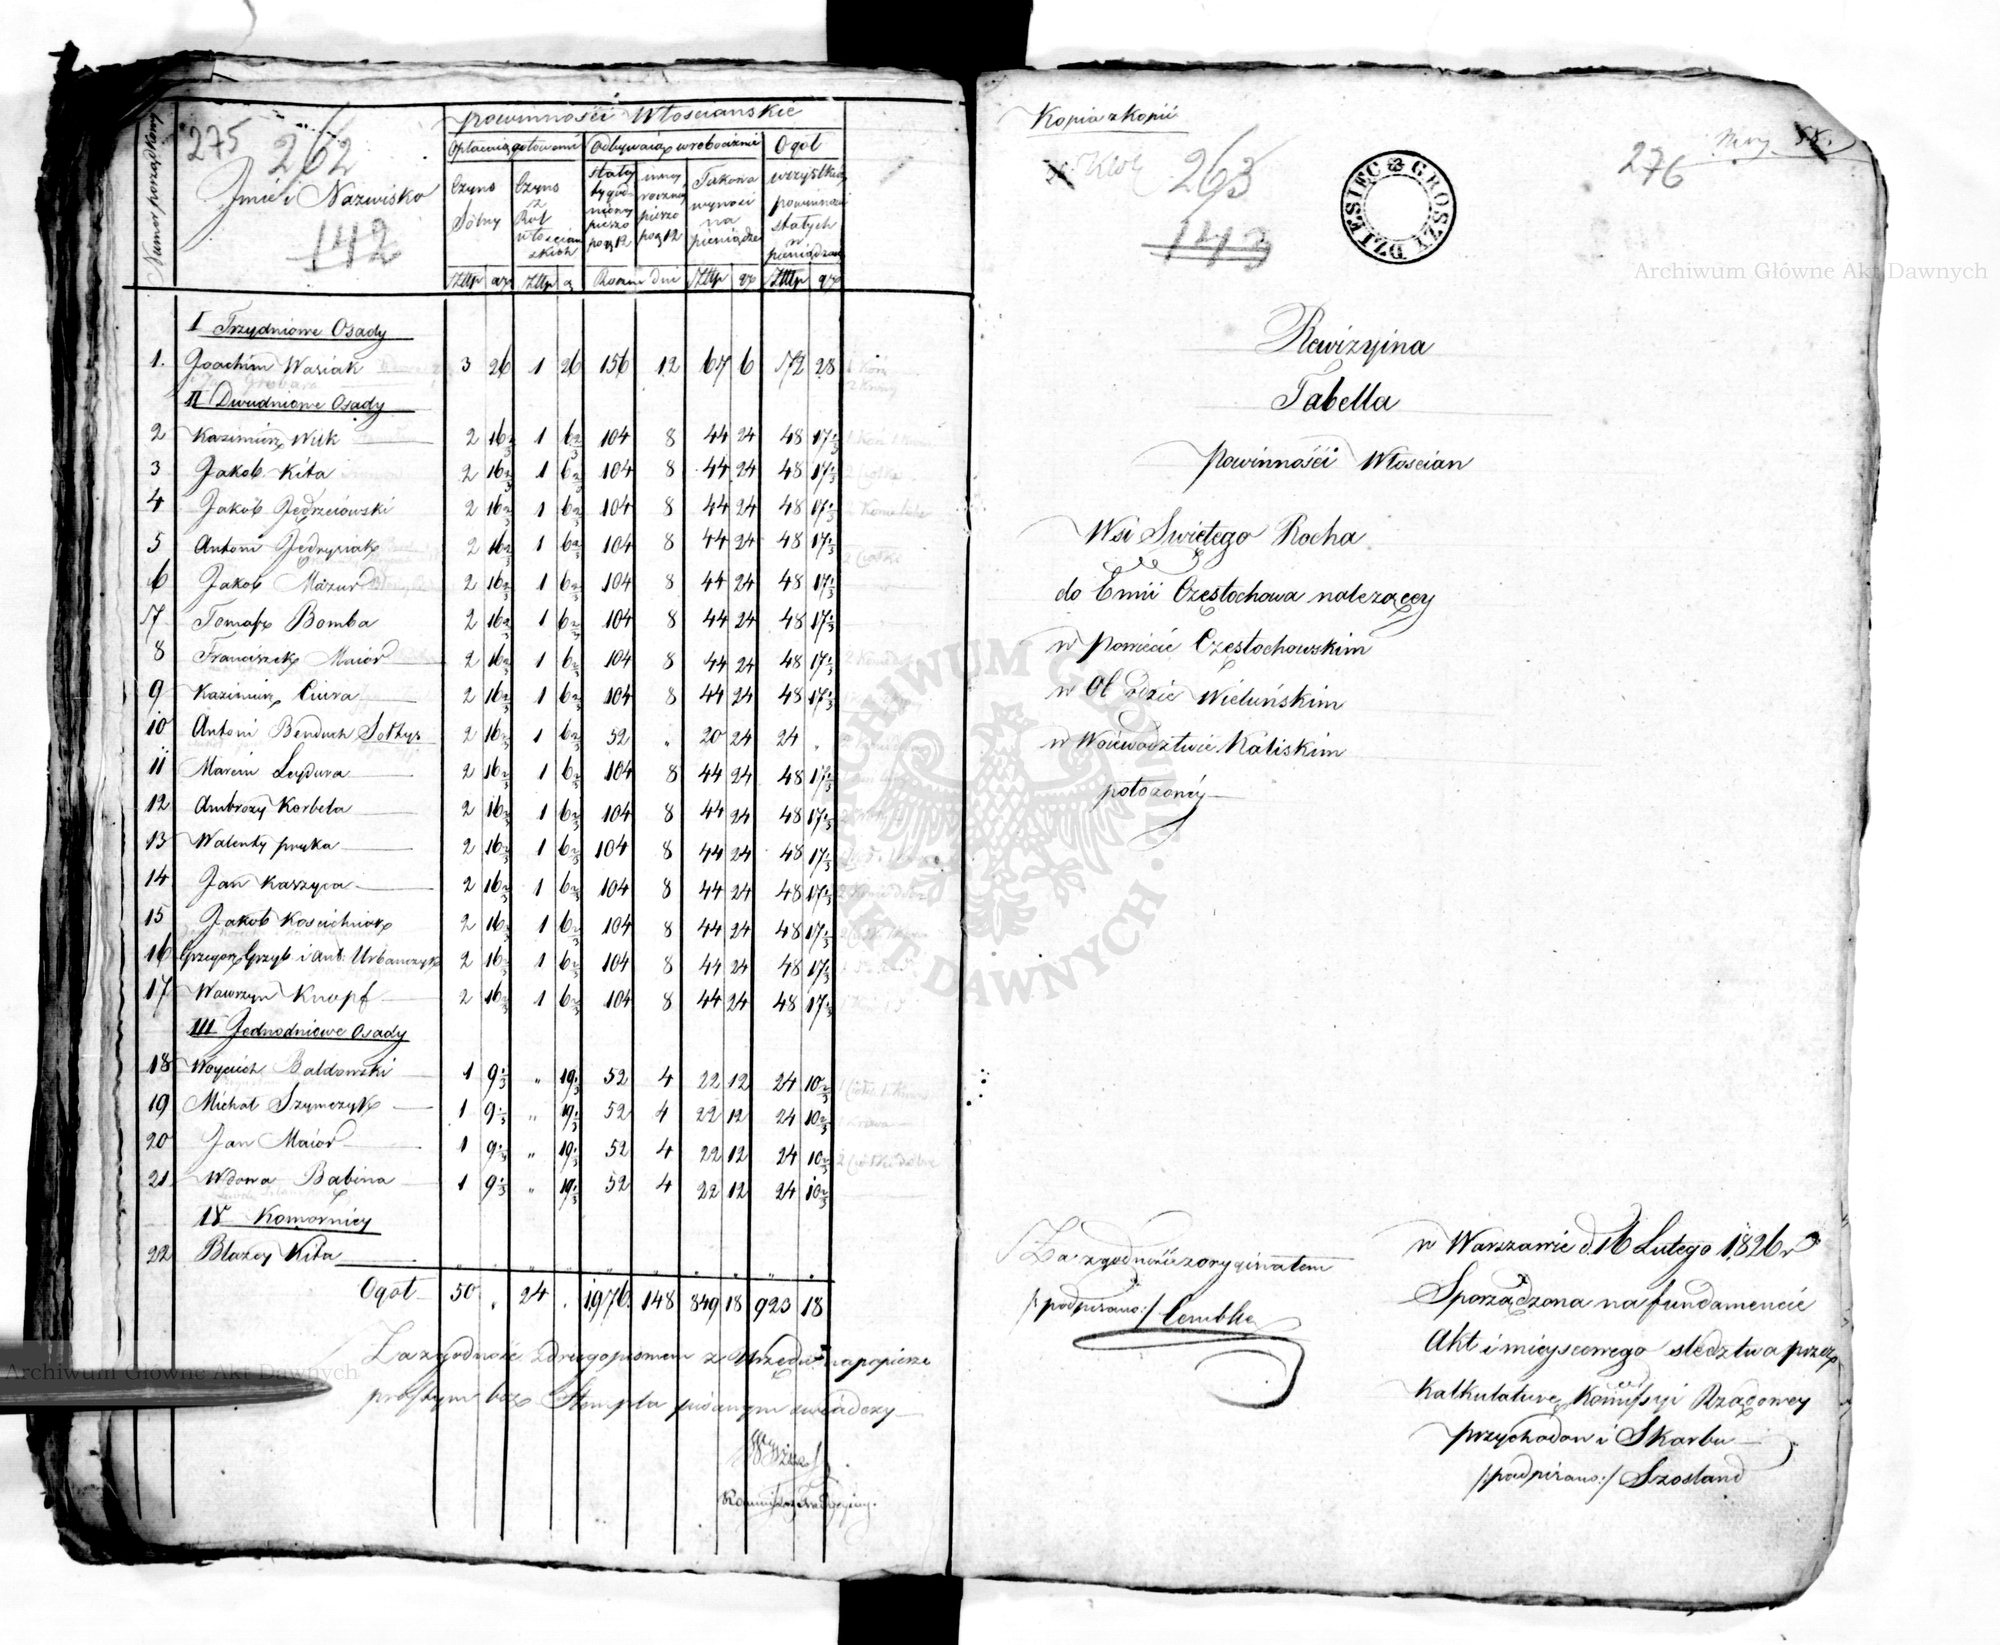 275
262
142
Numer porządkowy
Jmie i Nazwisko
powinności Włościanskie
Opłacaią gotowemi
Odbywaią w robociźnie
Ogół
Czynsz Rólny
Czynsz z Rol włościanskich
stały tygodniowy pieszo po gr 12
inney roczney pieszo po gr 12
Takowa wynosi na pieniądze
wszystkich powinności stałych w pieniądzach
Złtp gr Złtp g Roczne dni Złtp gr Złtp gr
I Trzydniowe Osady
1. Joachim Wasiak 3 26 1 26 156 12 67 6 72 28
II Dwudniowe Osady
2 Kazimierz Wilk 2 16 2/3 1 6 2/3 104 8 44 24 48 17 1/3
3 Jakob Kita 2 16 2/3 1 6 2/3 104 8 44 24 48 17 1/3
4 Jakób Jędrzeiowski 2 16 2/3 1 6 2/3 104 8 44 24 48 17 1/3
5 Antoni Jędrysiak 2 16 2/3 1 6 2/3 104 8 44 24 48 17 1/3
6 Jakob Mazur 2 16 2/3 1 6 2/3 104 8 44 24 48 17 1/3
7 Tomasz Bomba 2 16 2/3 1 6 2/3 104 8 44 24 48 17 1/3
8 Franciszek Maior 2 16 2/3 1 6 2/3 104 8 44 24 48 17 1/3
9 Kazimierz Ciura 2 16 2/3 1 6 2/3 104 8 44 24 48 17 1/3
10 Antoni Benduch Sołtys 2 16 2/3 1 6 2/3 52 " 20 24 24 "
11 Marcin Leydura 2 16 2/3 1 6 2/3 104 8 44 24 48 17 1/3
12 Ambroży Korbela 2 16 2/3 1 6 2/3 104 8 44 24 48 17 1/3
13 Walenty pruka 2 16 2/3 1 6 2/3 104 8 44 24 48 17 1/3
14 Jan Kaszyca 2 16 2/3 1 6 2/3 104 8 44 24 48 17 1/3
15 Jakob Kościelniak 2 16 2/3 1 6 2/3 104 8 44 24 48 17 1/3
16 Grzegorz Grzyb i Ant: Urbanczyk 2 16 2/3 1 6 2/3 104 8 44 24 48 17 1/3
17 Wawrzyn Knopf 2 16 2/3 1 6 2/3 104 8 44 24 48 17 1/3
III Jednodniowe Osady
18 Woyciech Baldowski 1 9 1/3 " 19 1/3 52 4 22 12 24 10 2/3
19 Michał Szymczyk 1 9 1/3 " 19 1/3 52 4 22 12 24 10 2/3
20 Jan Maior 1 9 1/3 " 19 1/3 52 4 22 12 24 10 2/3
21 Wdowa Babina 1 9 1/3 " 19 1/3 52 4 22 12 24 10 2/3
IV Komornicy
22 Błażey Kita " " " " " " " " " "
Ogół 50 " 24 . 1976. 148 849 18 923 18
Za zgodność z drugopismem z Urzędu na papierze
prostym bez Stempla pisanym świadczy
Kopia z kopii
263
143
276
DZIESIĘC GROSZY
3
Rewizyina
Tabella
powinnośći Włoscian
Wsi Swiętego Rocha
do Emii Częstochowa należącey
w Powiecie Częstochowskim
w Obwodzie Wieluńskim
w Woiewodztwie Kaliskim
położoney
Za zgodność z oryginałem
/:podpisano:/ Lembke
w Warszawie d. 16 Lutego 1826 r
Sporządzona na fundamencie
Akt i mieyscowego sledztwa przez
Kalkulaturę Komissyi Rządowey
przychodow i Skarbu
/:podpisano:/ Szosland
Archiwum Główne Akt Dawnych
Archiwum Główne Akt Dawnych
ARCHIWUM GŁÓWNE AKT DAWNYCH